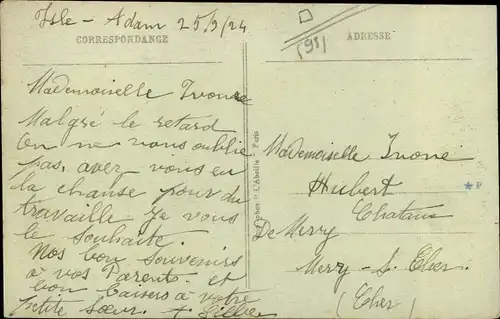 Isle-Adam 25/9/24
CORRESPONDANCE
Mademoiselle Ivonne
Malgré le retard
On ne vous oublie
pas. avez vous eu
la chanse pour du
travaille Je vous
le souhaite.
Nos bon souvenirs
à vos Parents. et
bon baisers à votre
petite sœur.
L'Abeille - Paris
(95)
ADRESSE
Mademoiselle Ivone
Hubert
Chataus
De Merry
Merry-S. Cher
(Cher)